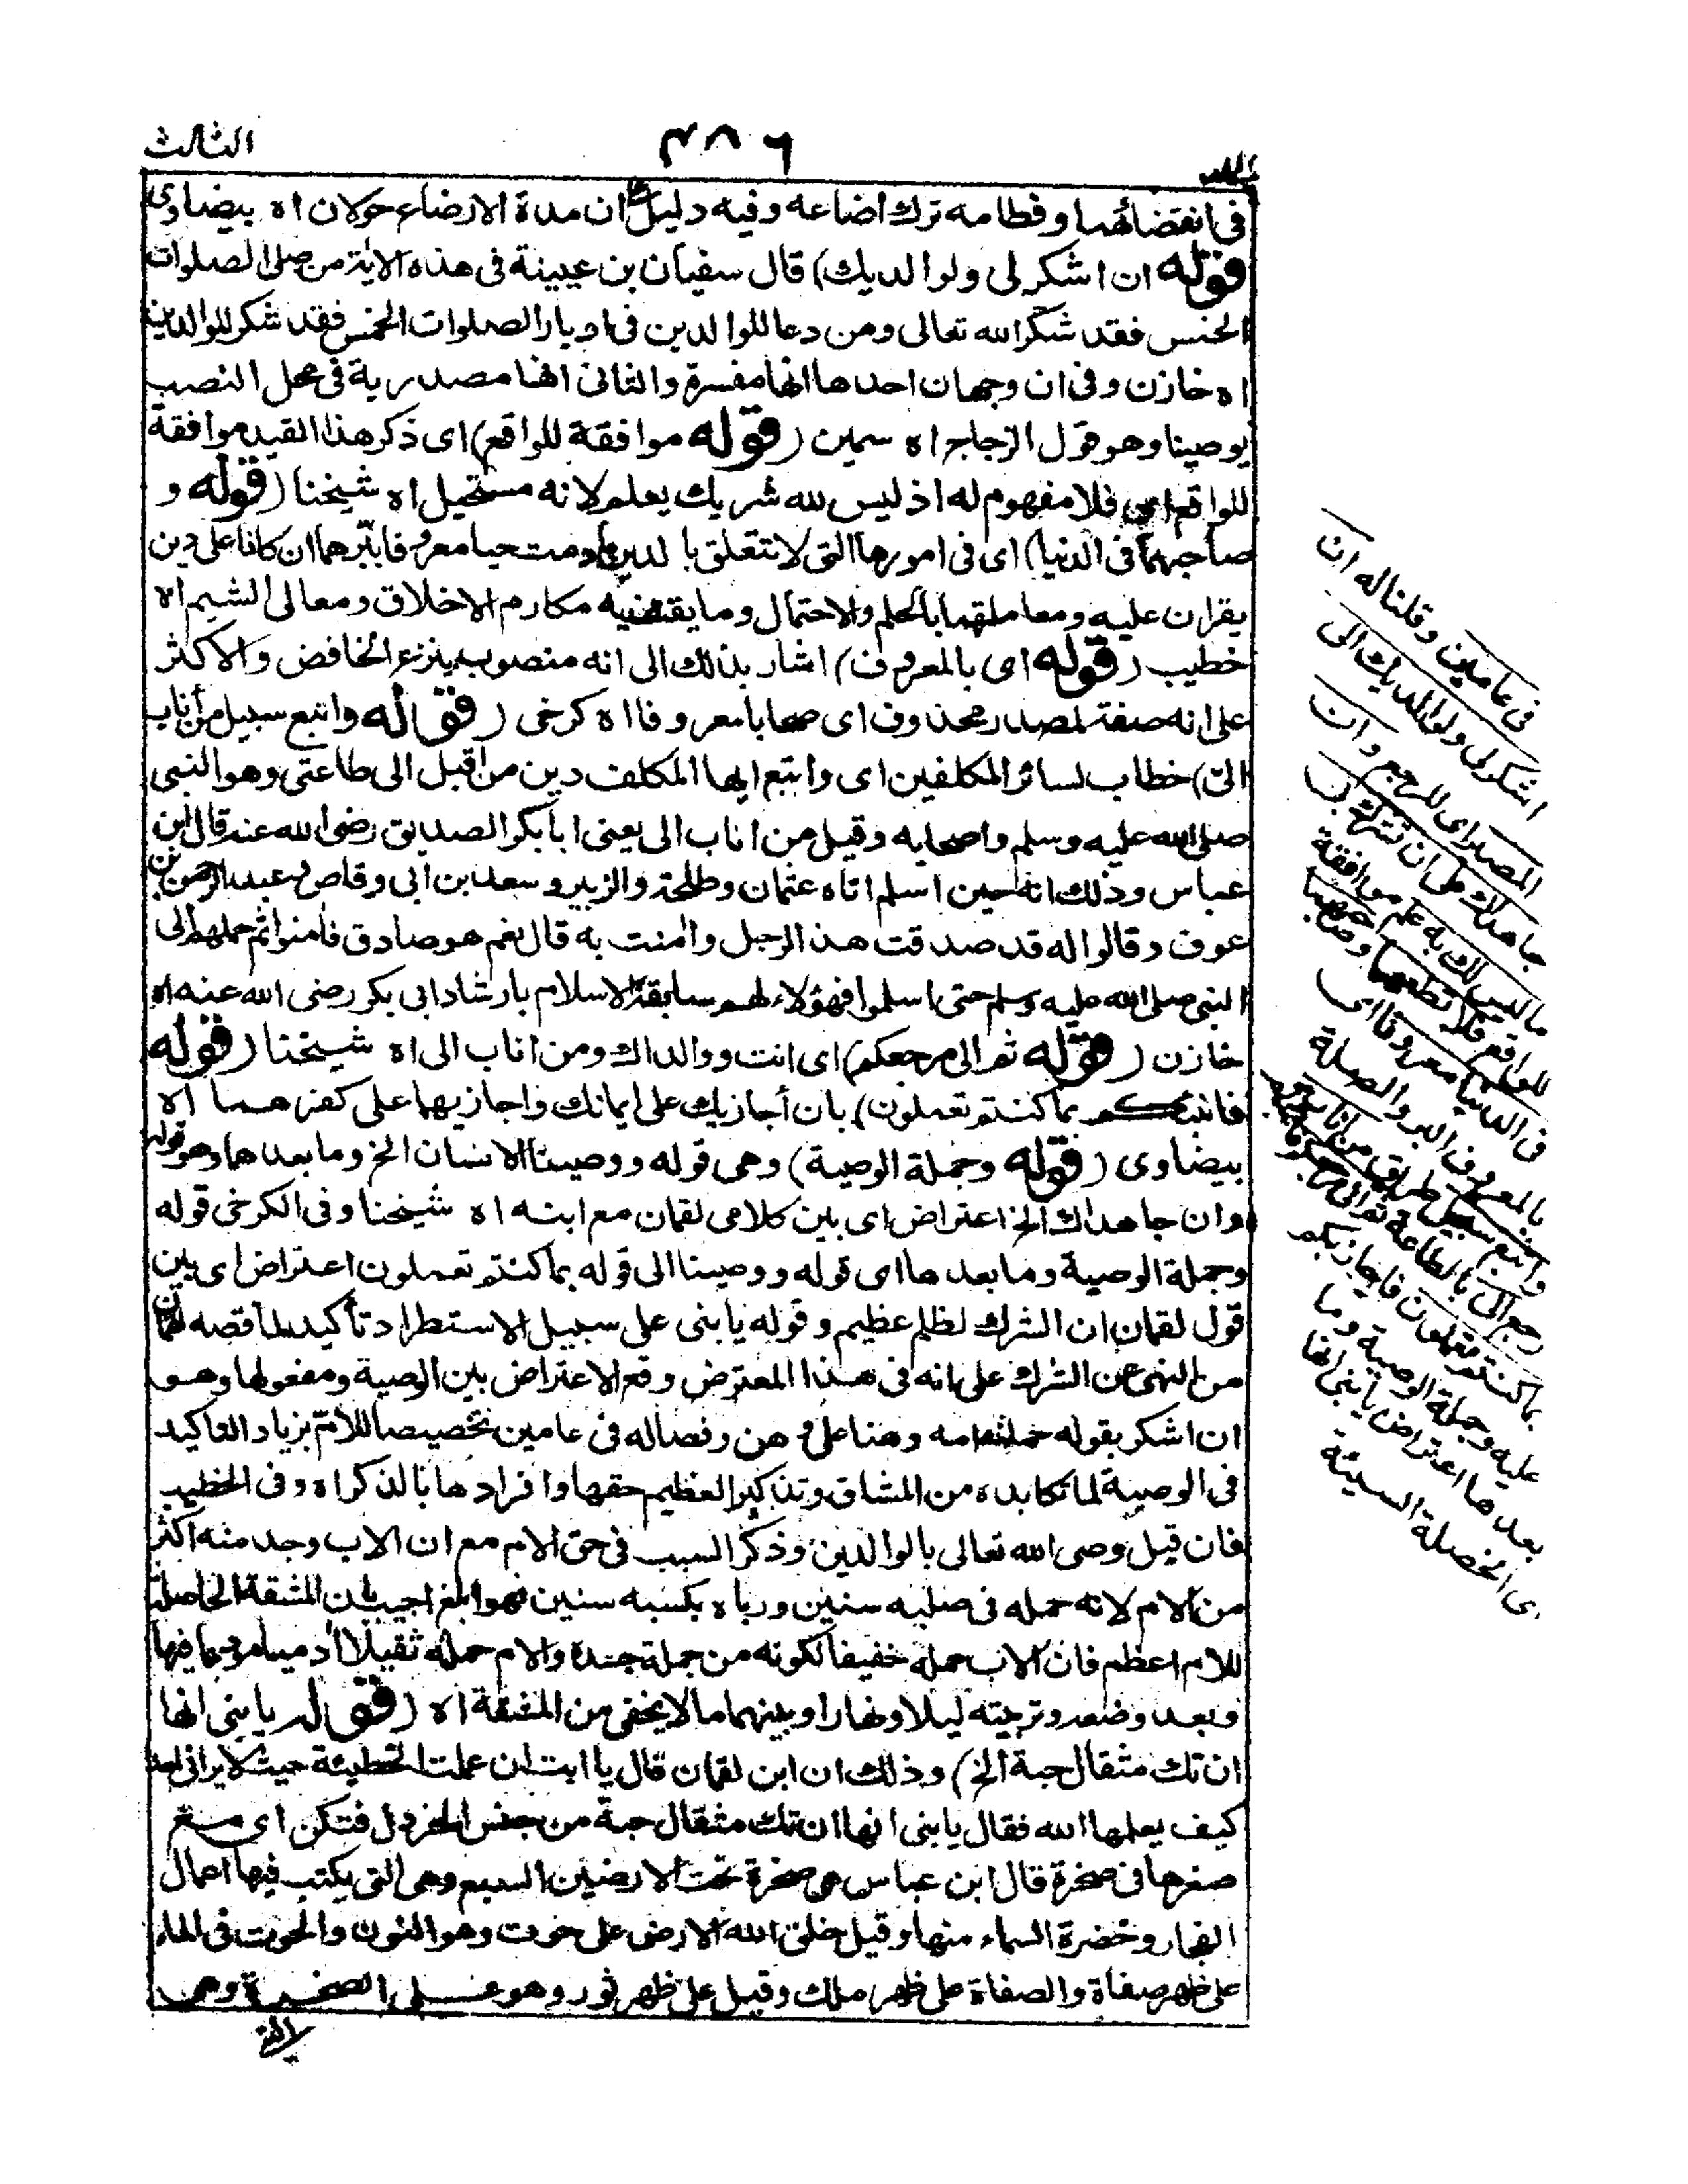 الثالث
٤٨٦
الجلد
فى انقضائهما و فطامه ترك ارضاعه وفيه دليل على ان مدة الارضاع حولان اه بيضاوى
قوله ان اشكر لى ولوالديك) قال سفيان بن عيينة فى هذه الاية من صلى الصلوات
الخمس فقد شكر الله تعالى ومن دعا للوالدين فى ادبار الصلوات الخمس فقد شكر للوالدين
اه خازن وفى ان وجهان احدها انها مفسرة والثانى انها مصدرية فى محل النصب
يوصينا وهو قول الزجاج اه سمين (قوله موافقة للواقع) اى ذكر هذا القيد موافقة
للواقع اى فلا مفهوم له اذ ليس لله شريك يعلم لانه مستحيل اه شيخنا (قوله و
صاحبهما فى الدنيا) اى فى امورها التى لا تتعلق بالدين مادمت حيا معروفا ببرهما ان كانا على دين
يقران عليه ومعاملتهما بالحلم والاحتمال وما يقتضيه مكارم الاخلاق ومعالى الشيم اه
خطيب (قوله اى بالمعروف) اشار بذلك الى انه منصوب بنزع الخافض والاكثر
على انه صفة لمصدر محذوف اى صحابا معروفا اه كرخى (قوله واتبع سبيل من أناب
الىّ) خطاب لسائر المكلفين اى واتبع ايها المكلف دين من اقبل الى طاعتى وهو النبى
صلى الله عليه وسلم واصحابه وقيل من اناب الى يعنى ابا بكر الصديق رضى الله عنه قال ابن
عباس وذلك انه حين اسلم اتاه عثمان وطلحة والزبير وسعد بن ابى وقاص وعبد الرحمن بن
عوف وقالوا له قد صدقت هذا الرجل وآمنت به قال نعم هو صادق فآمنوا ثم حملهم الى
النبى صلى الله عليه وسلم حتى اسلموا فهؤلاء لهم سابقة الاسلام بارشاد ابى بكر رضى الله عنه اه
خازن (قوله ثم الى مرجعكم) اى انت ووالداك ومن اناب الى اه شيخنا (قوله
فانبئكم بما كنتم تعملون) بان أجازيك على ايمانك واجازيهما على كفرهما اه
بيضاوى (قوله وجملة الوصية) وهى قوله ووصينا الانسان الخ وما بعدها وهو قوله
وان جاهداك الخ اعتراض اى بين كلامى لقمان مع ابنه اه شيخنا وفى الكرخى قوله
وجملة الوصية وما بعدها اى قوله ووصينا الى قوله بما كنتم تعملون اعتراض اى بين
قول لقمان ان الشرك لظلم عظيم وقوله يا بنى على سبيل الاستطراد تأكيد لما قصه لقمان
من النهى عن الشرك على انه فى هذا المعترض وقع الاعتراض بين الوصية ومفعولها وهو
ان اشكر بقوله حملته امه وهنا على وهن وفصاله فى عامين تخصيصا للام بزياد التاكيد
فى الوصية لما تكابده من المشاق وتذكير العظيم حقها وافرادها بالذكر اه وفى الخطيب
فان قيل وصى الله تعالى بالوالدين وذكر السبب فى حق الام مع ان الاب وجد منه اكثر
من الام لانه حمله فى صلبه سنين ورباه بكسبه سنين فهو ابلغ اجيب بان المشقة الحاصلة
للام اعظم فان الاب حمله خفيفا لكونه من جملة جسده والام حملته ثقيلا آدميا مودعا فيها
وبعد وضعه وتربيته ليلا ونهارا وبينهما ما لا يخفى من المشقة اه (قوله يا بنى انها
ان تك مثقال حبة الخ) وذلك ان ابن لقمان قال يا ابت ان عملت الخطيئة حيث لا يرانى احد
كيف يعلمها الله فقال يا بنى انها ان تك مثقال حبة من جنس الخردل فتكن اى مع
صغرها فى صخرة قال ابن عباس هى صخرة تحت الارضين السبع وهى التى يكتب فيها اعمال
الفجار وخضرة السماء منها وقيل خلق الله الارض على حوت وهو النون والحوت فى الماء
على ظهر صفاة والصفاة على ظهر ملك وقيل على ظهر ثور وهو على الصخرة وهى
فى عامين وقلنا له ان
اشكر لى ولوالديك الى
المصير اى المرجع وان
جاهداك على ان تشرك بى
ما ليس لك به علم موافقة
للواقع فلا تطعهما وصاحبهما
فى الدنيا معروفا اى
بالمعروف البر والصلة
واتبع سبيل طريق من اناب
رجع الى بالطاعة ثم الى مرجعكم فانبئكم
بما كنتم تعملون فاجازيكم
عليه وجملة الوصية وما
بعدها اعتراض يا بنى انها
اى الخصلة السيئة